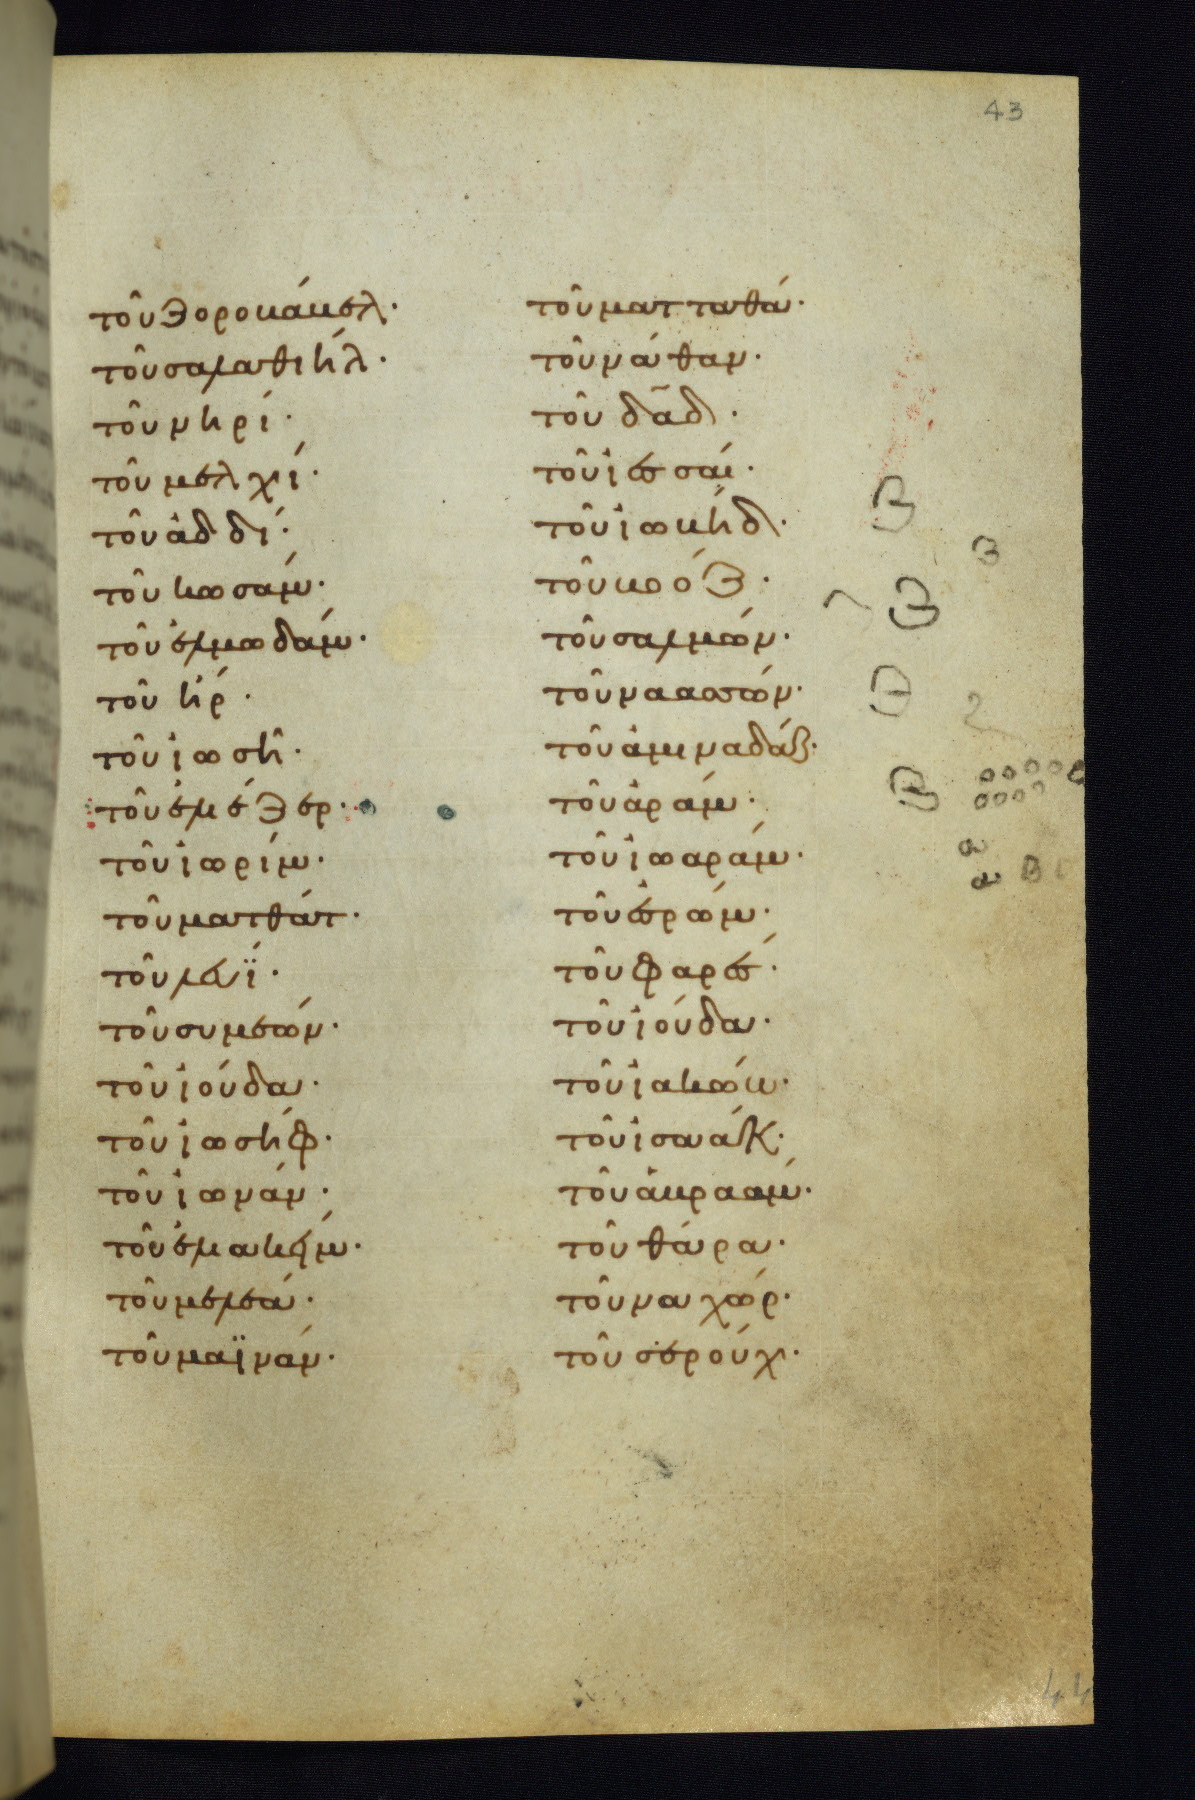 43
τοῦ ζοροβάβελ·
τοῦ σαλαθιήλ·
τοῦ νηρί·
τοῦ μελχί·
τοῦ ἀδδί·
τοῦ κωσάμ·
τοῦ ἐλμωδάμ·
τοῦ ἤρ·
τοῦ ἰωσῆ·
τοῦ ἐλιέζερ·
τοῦ ἰωρίμ·
τοῦ ματθάτ·
τοῦ λευΐ·
τοῦ συμεών·
τοῦ ἰούδα·
τοῦ ἰωσήφ·
τοῦ ἰωνάν·
τοῦ ἐλιακείμ·
τοῦ μελεά·
τοῦ μαϊνάν·
τοῦ ματταθά·
τοῦ νάθαν·
τοῦ δᾱδ·
τοῦ ἰεσσαί·
τοῦ ἰωβήδ·
τοῦ βοόζ·
τοῦ σαλμών·
τοῦ ναασσών·
τοῦ ἀμιναδάβ·
τοῦ ἀράμ·
τοῦ ἰωαράμ·
τοῦ ἐσρώμ·
τοῦ φαρές·
τοῦ ἰούδα·
τοῦ ἰακώβ·
τοῦ ἰσαάκ·
τοῦ ἀβραάμ·
τοῦ θάρα·
τοῦ ναχώρ·
τοῦ σερούχ·
44